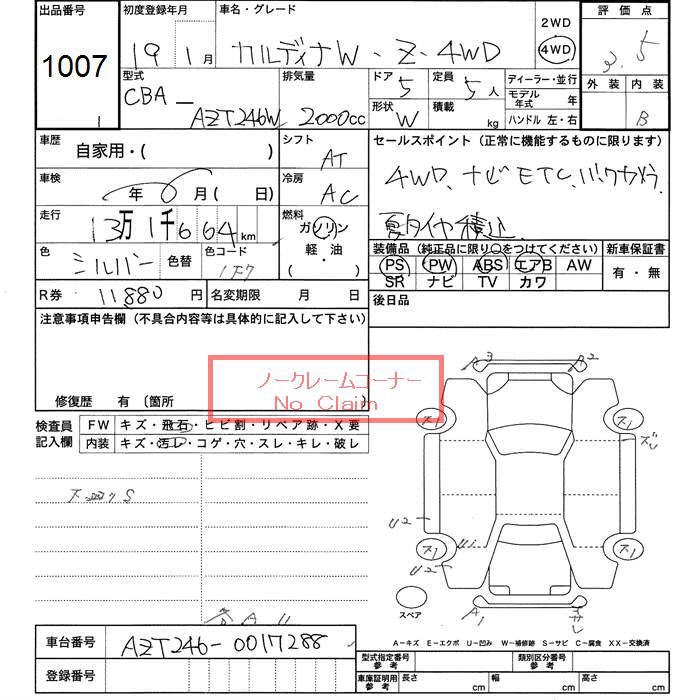 出品番号
1007
1
初度登録年月
19 1月
車名・グレード
カルディナW・Z・4WD
2WD
4WD
評価点
5
外装 内装
B
型式
CBA-
AZT246W
排気量
2000cc
ドア 5
定員 5人
ディーラー・並行
モデル年式 年
形状 W
積載 kg
ハンドル 左・右
車歴
自家用・( )
シフト
AT
車検
年 月( 日)
冷房
AC
走行
13万1千664km
燃料
ガソリン
軽・油
( ・ )
色
シルバー
色替
色コード
1F7
R券 11880円
名変期限 月 日
セールスポイント(正常に機能するものに限ります)
4WD、ナビETC、バックカメラ
夏タイヤ積込
装備品(純正品に限り○をつけてください)
新車保証書
PS PW ABS エアB AW
SR ナビ TV カワ
有・無
後日品
注意事項申告欄(不具合内容等は具体的に記入して下さい)
修復歴 有(箇所
ノークレームコーナー
No Claim
検査員記入欄
FW キズ・飛石・ヒビ割・リペア跡・X要
内装 キズ・汚レ・コゲ・穴・スレ・キレ・破レ
S
A3
A2
ズ1
ズ1
U2
ズ1
U1
ズ1
U2
スペア
A1
A-キズ E-エクボ U-凹み W-補修跡 S-サビ C-腐食 XX-交換済
車台番号
AZT246-0017288
登録番号
型式指定番号参考
類別区分番号参考
車庫証明用参考
長さ cm
幅 cm
高さ cm